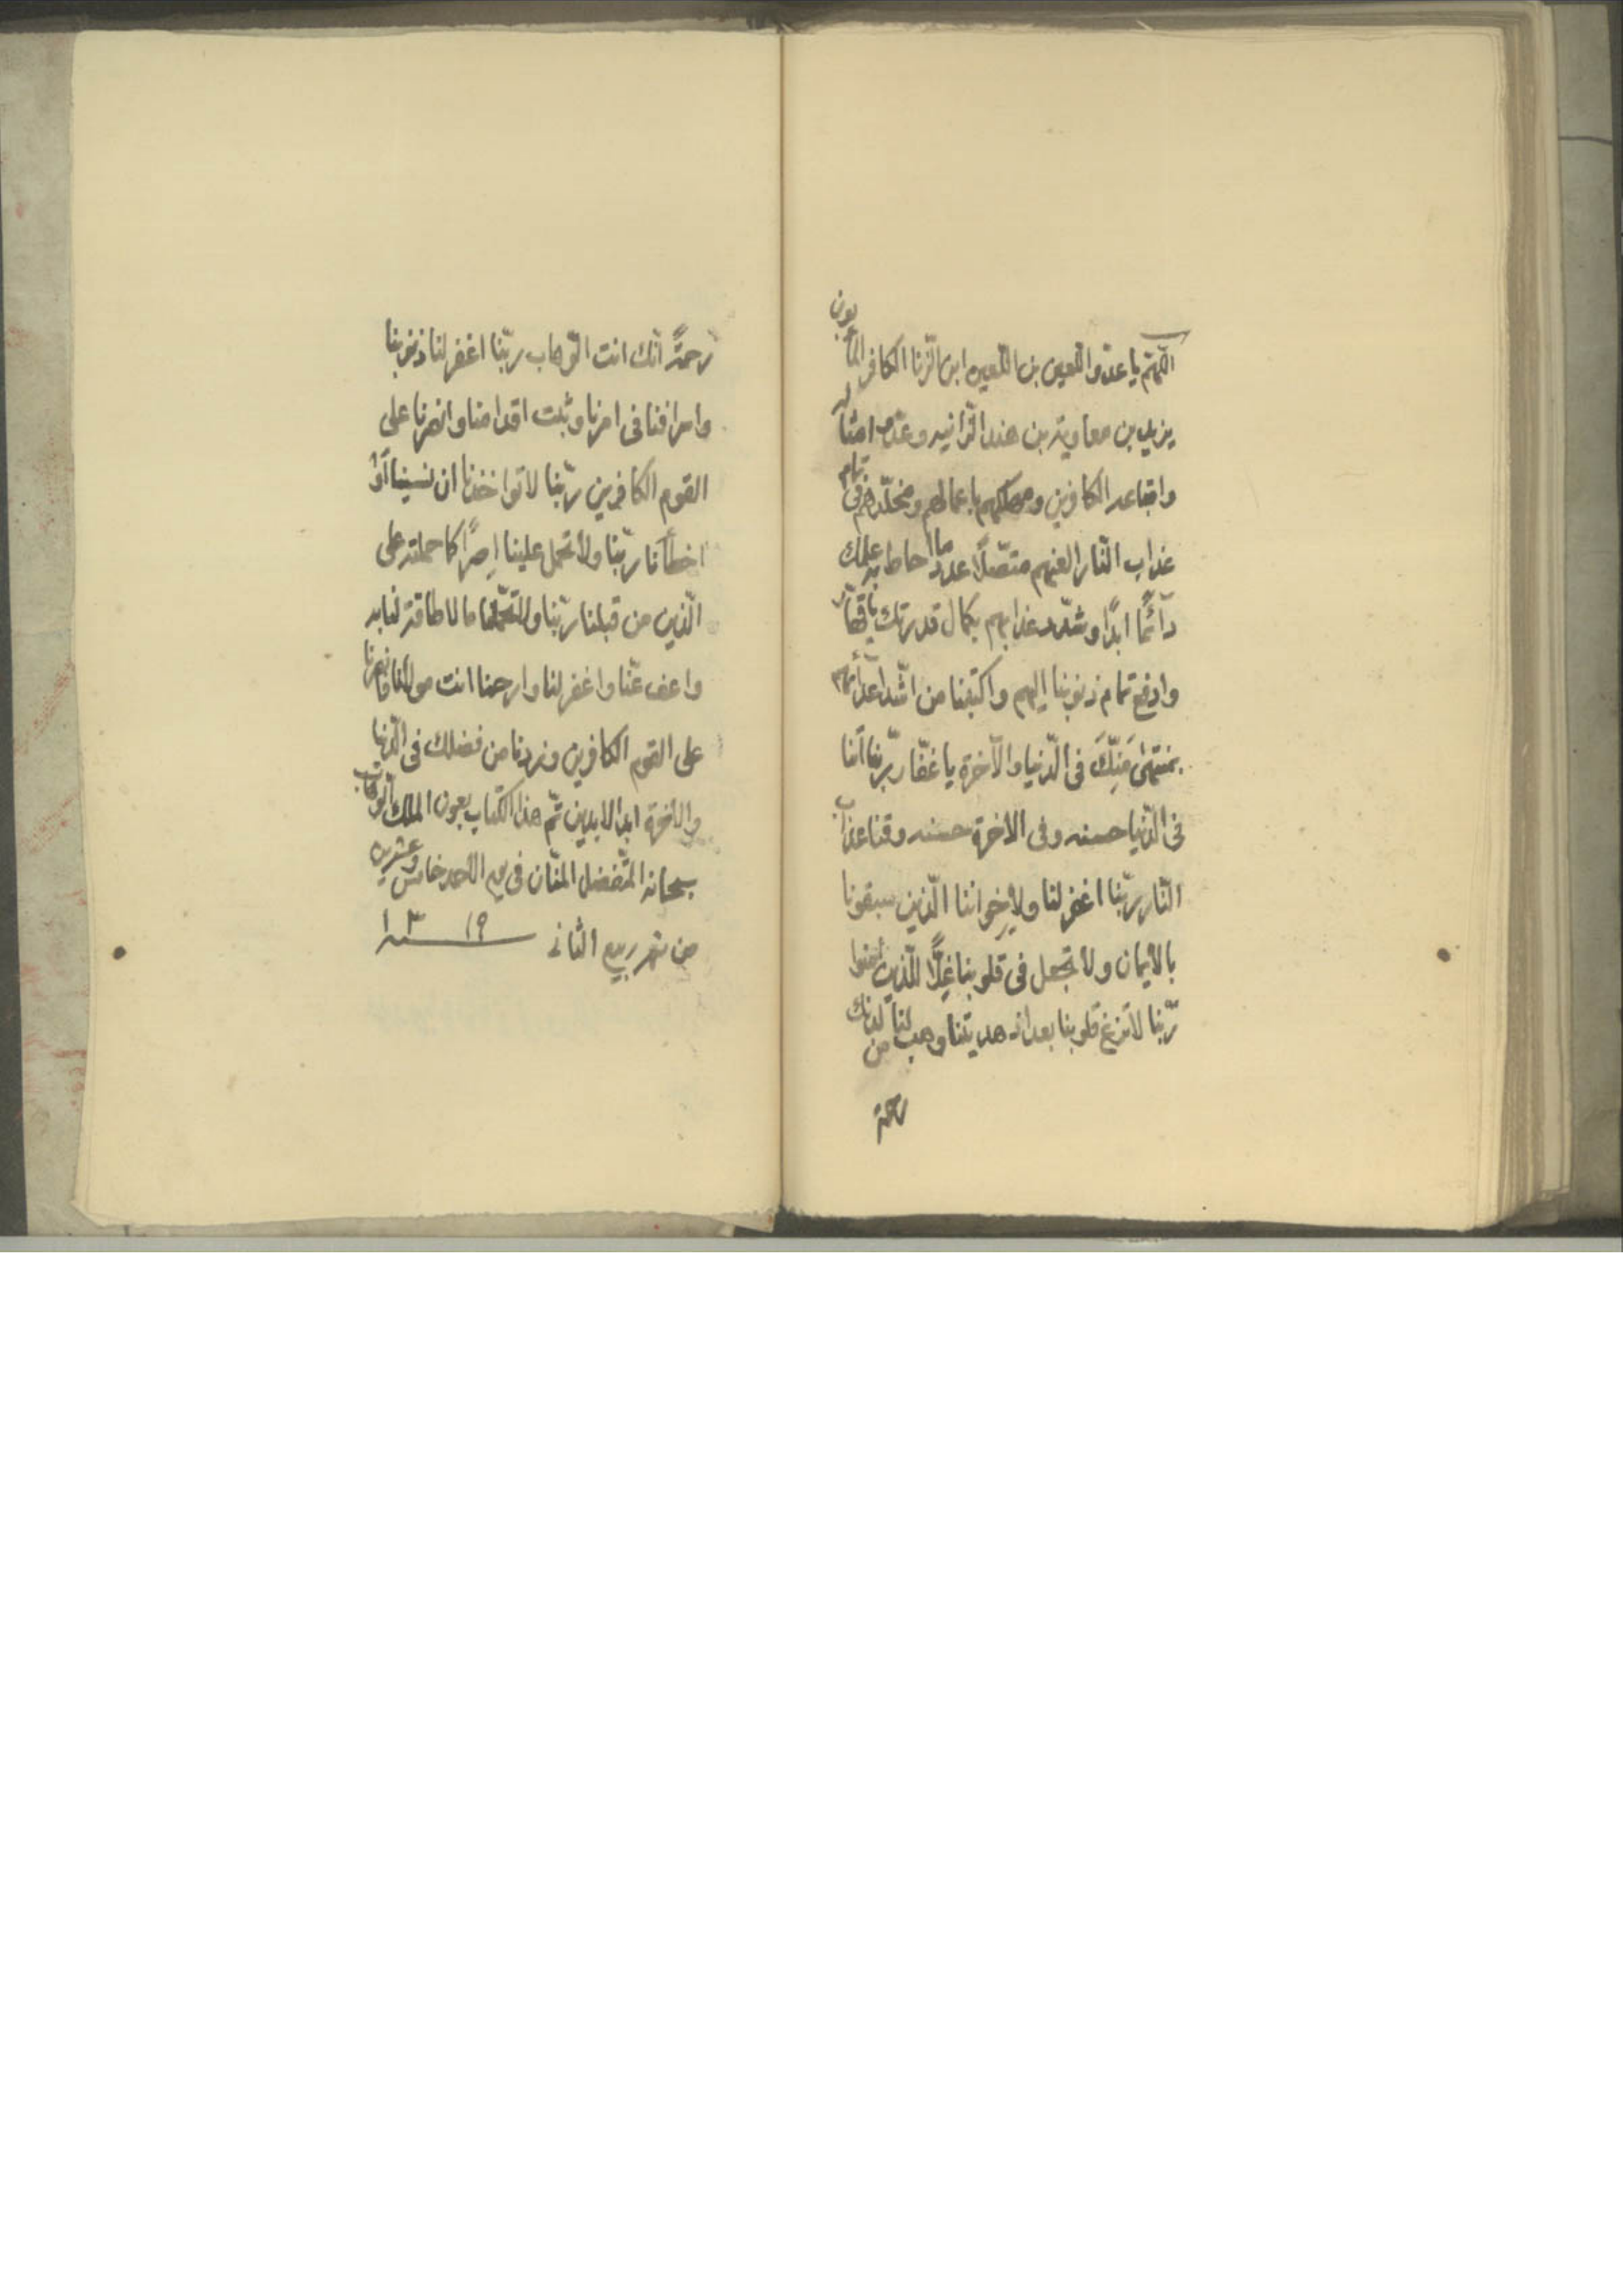 اللّهمّ يا عدوّ اللّعين بن اللّعين ابن الزّنا الكافر المأبون
يزيد بن معاوية بن هند الزّانيه وعدوّ امثاله
واتباعه الكافرين ومهلكهم باعمالهم ومخلّدهم فى تمام
عذاب النّار العنهم متّصلاً عدد ما احاط به علمك
دآئماً ابداً وشدّد عذابهم بكمال قدرتك يا قهّار
وادفع تمام ذنوبنا اليهم واكتبنا من اشدّ اعدآئهم
بمنتهىٰ مَنِّكَ فى الدّنيا والآخرة يا غفّار ربّنا آتنا
فى الدّنيا حسنه وفى الاخرة حسنه وقنا عذاب
النّار ربّنا اغفر لنا ولإخواننا الّذين سبقونا
بالايمان ولا تجعل فى قلوبنا غِلّاً للّذين آمنوا
ربّنا لا تزغ قلوبنا بعد اذ هديتنا وهب لنا من لدنك
رحمة
رحمةً انّك انت الوّهاب ربّنا اغفر لنا ذنوبنا
واسرافنا فى امرنا وثبّت اقدامنا وانصرنا على
القوم الكافرين ربّنا لا تواخذنا ان نسينا آوْ
اخطأنا ربّنا ولا تحمل علينا اِصرًا كما حملته على
الّذين من قبلنا ربّنا ولا تحمّلنا ما لا طاقة لنا به
واعف عنّا واغفر لنا وارحمنا انت مولانا فانصرنا
على القوم الكافرين وزدنا من فضلك فى الدّنيا
والاخرة ابد الابدين تمّ هذا الكتاب بعون الملك الوهّاب
سبحانه المتفضل المنّان فى يوم الاحد خامس وعشرين
من شهر ربيع الثانى سنه ۱۳۱۹